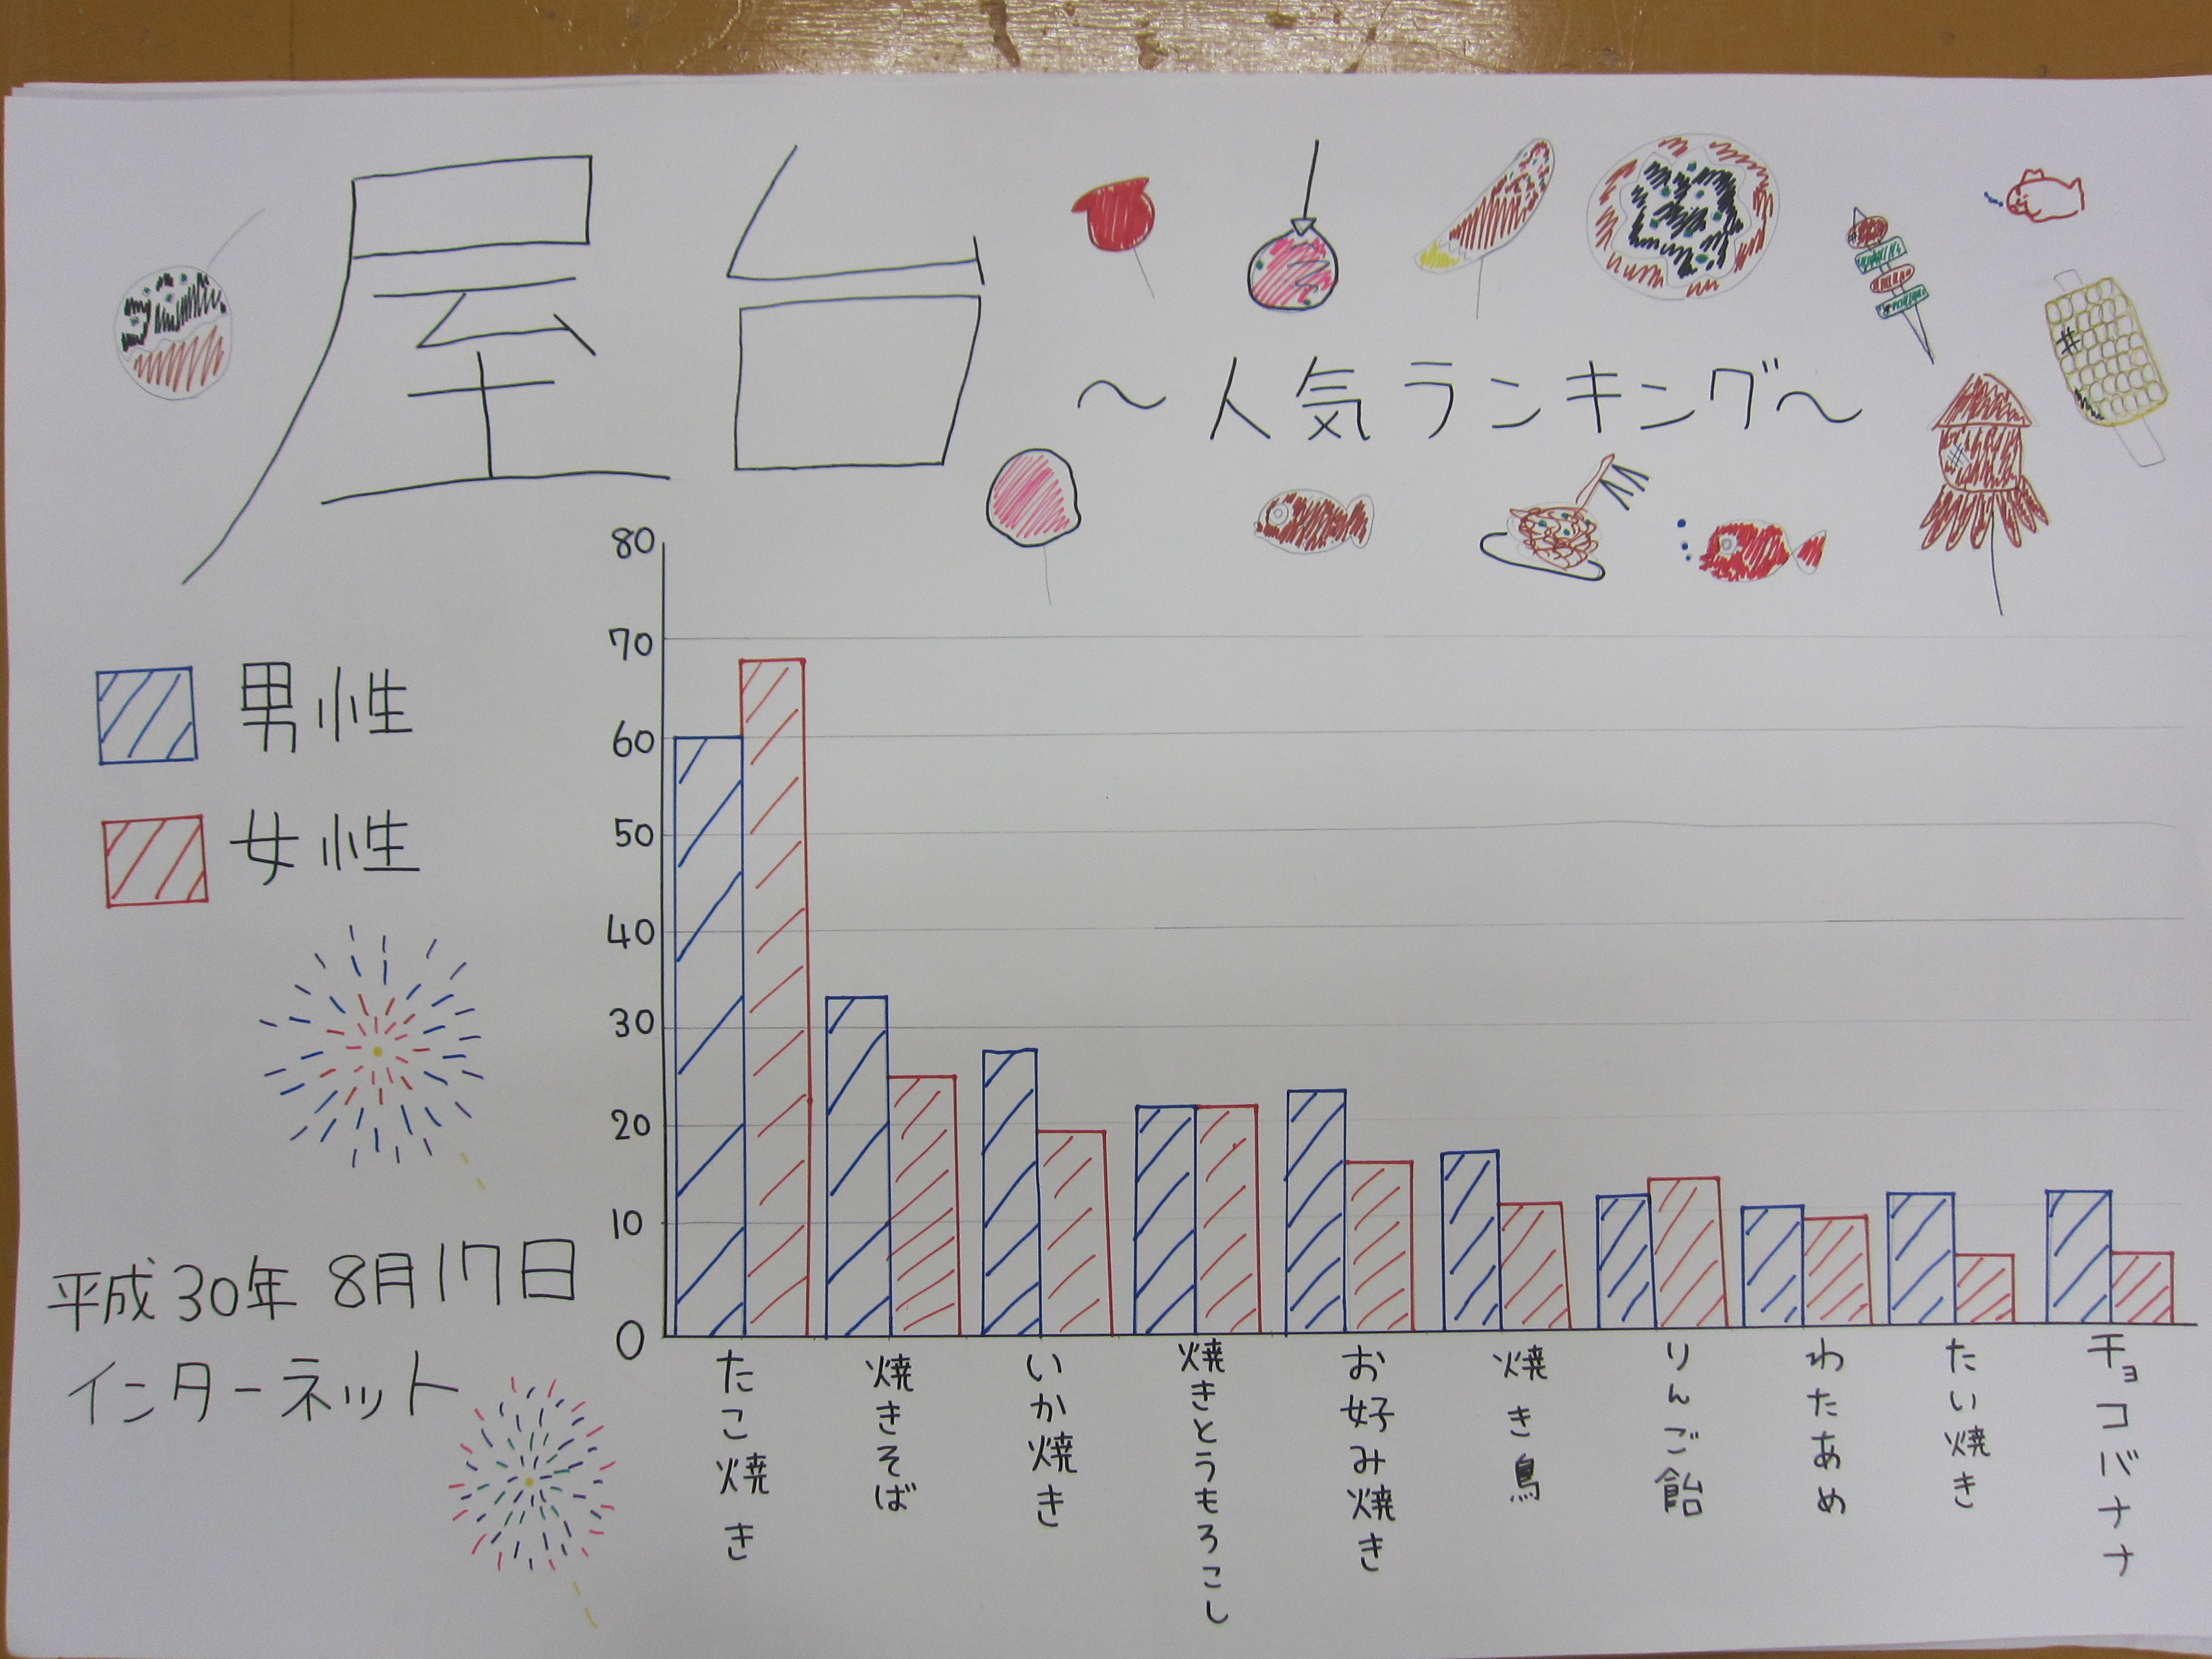 屋台
～人気ランキング～
男性
女性
平成30年 8月17日
インターネット
80
70
60
50
40
30
20
10
0
たこ焼き
焼きそば
いか焼き
焼きとうもろこし
お好み焼き
焼き鳥
りんご飴
わたあめ
たい焼き
チョコバナナ